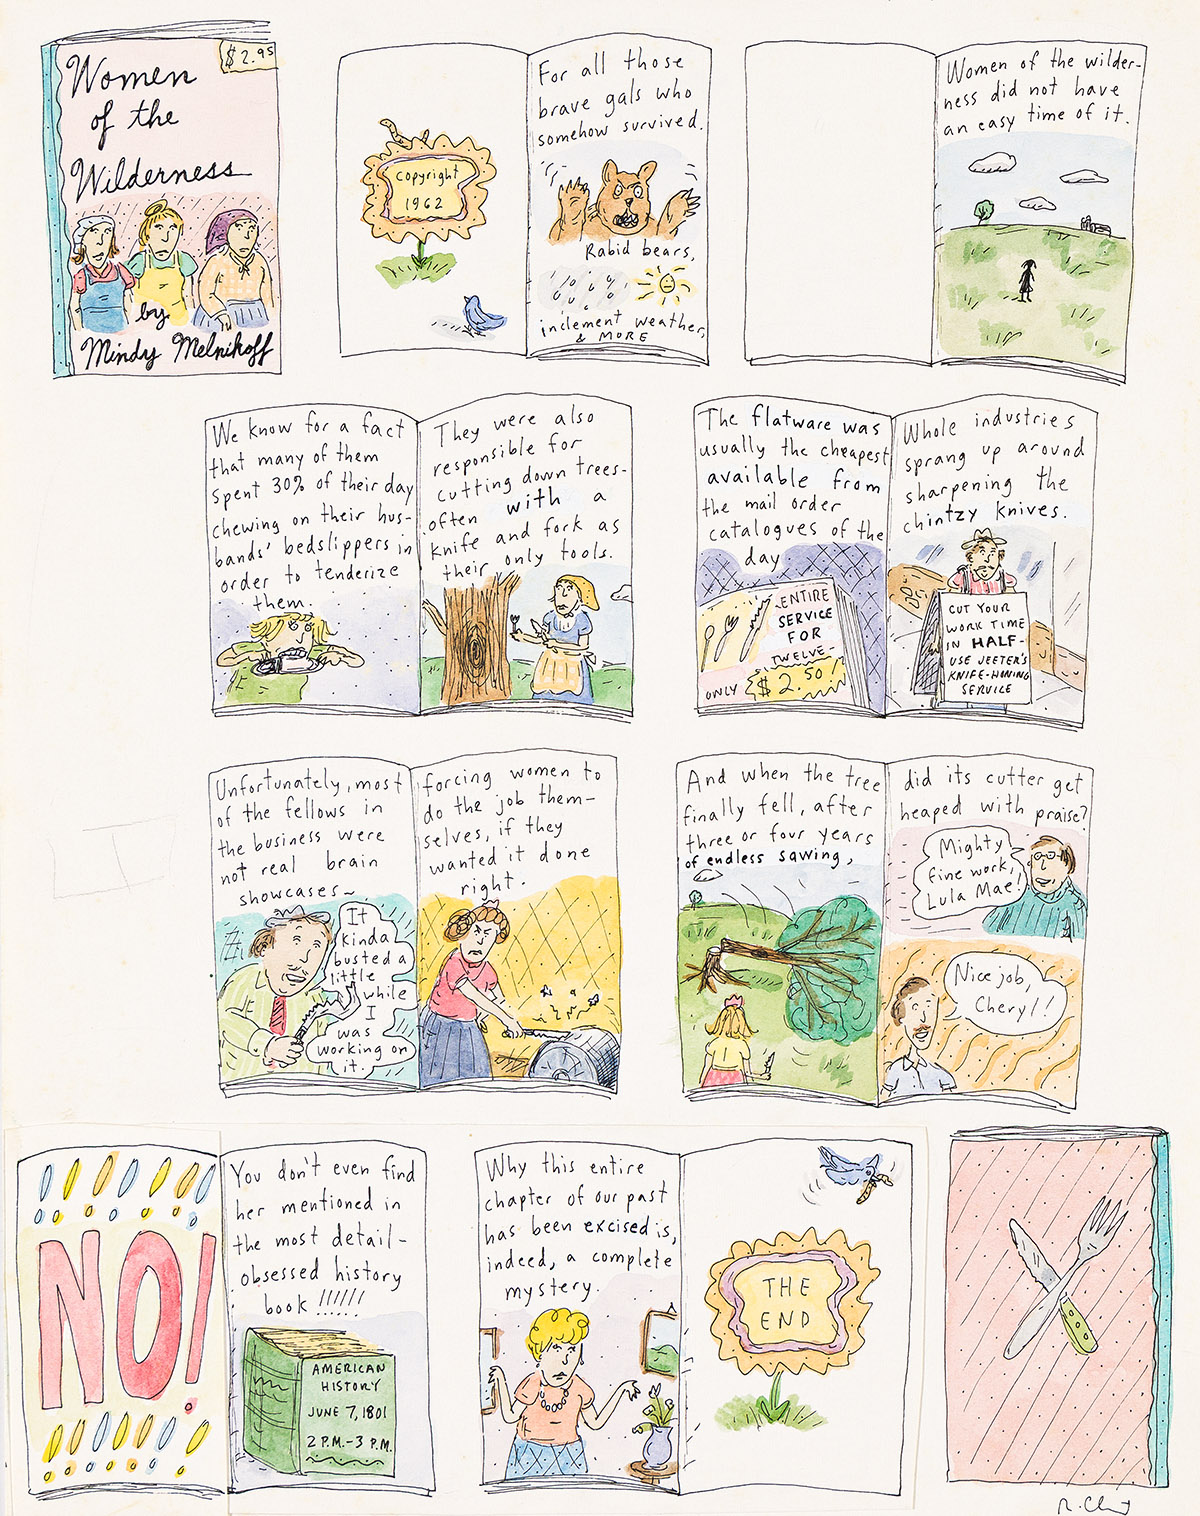 $2.95
Women
of the
Wilderness
by
Mindy Melnikoff
Copyright
1962
For all those
brave gals who
somehow survived.
Rabid bears,
inclement weather,
& MORE
Women of the wilder-
ness did not have
an easy time of it.
We know for a fact
that many of them
spent 30% of their day
chewing on their hus-
bands' bedslippers in
order to tenderize
them.
They were also
responsible for
cutting down trees-
often with a
knife and fork as
their only tools.
The flatware was
usually the cheapest
available from
the mail order
catalogues of the
day
ENTIRE
SERVICE
FOR
TWELVE-
ONLY $2.50
Whole industries
sprang up around
sharpening the
chintzy knives.
CUT YOUR
WORK TIME
IN HALF-
USE JEETER'S
KNIFE-HONING
SERVICE
Unfortunately, most
of the fellows in
the business were
not real brain
showcases~
It
kinda
busted a
little
while
I
was
working on
it.
forcing women to
do the job them-
selves, if they
wanted it done
right.
And when the tree
finally fell, after
three or four years
of endless sawing,
did its cutter get
heaped with praise?
Mighty
fine work,
Lula Mae!
Nice job,
Cheryl!
!!!!!!!
NO!
!!!!!!!
You don't even find
her mentioned in
the most detail-
obsessed history
book !!!!!!
AMERICAN
HISTORY
JUNE 7, 1801
2 P.M.-3 P.M.
Why this entire
chapter of our past
has been excised is,
indeed, a complete
mystery.
THE
END
R. Chast